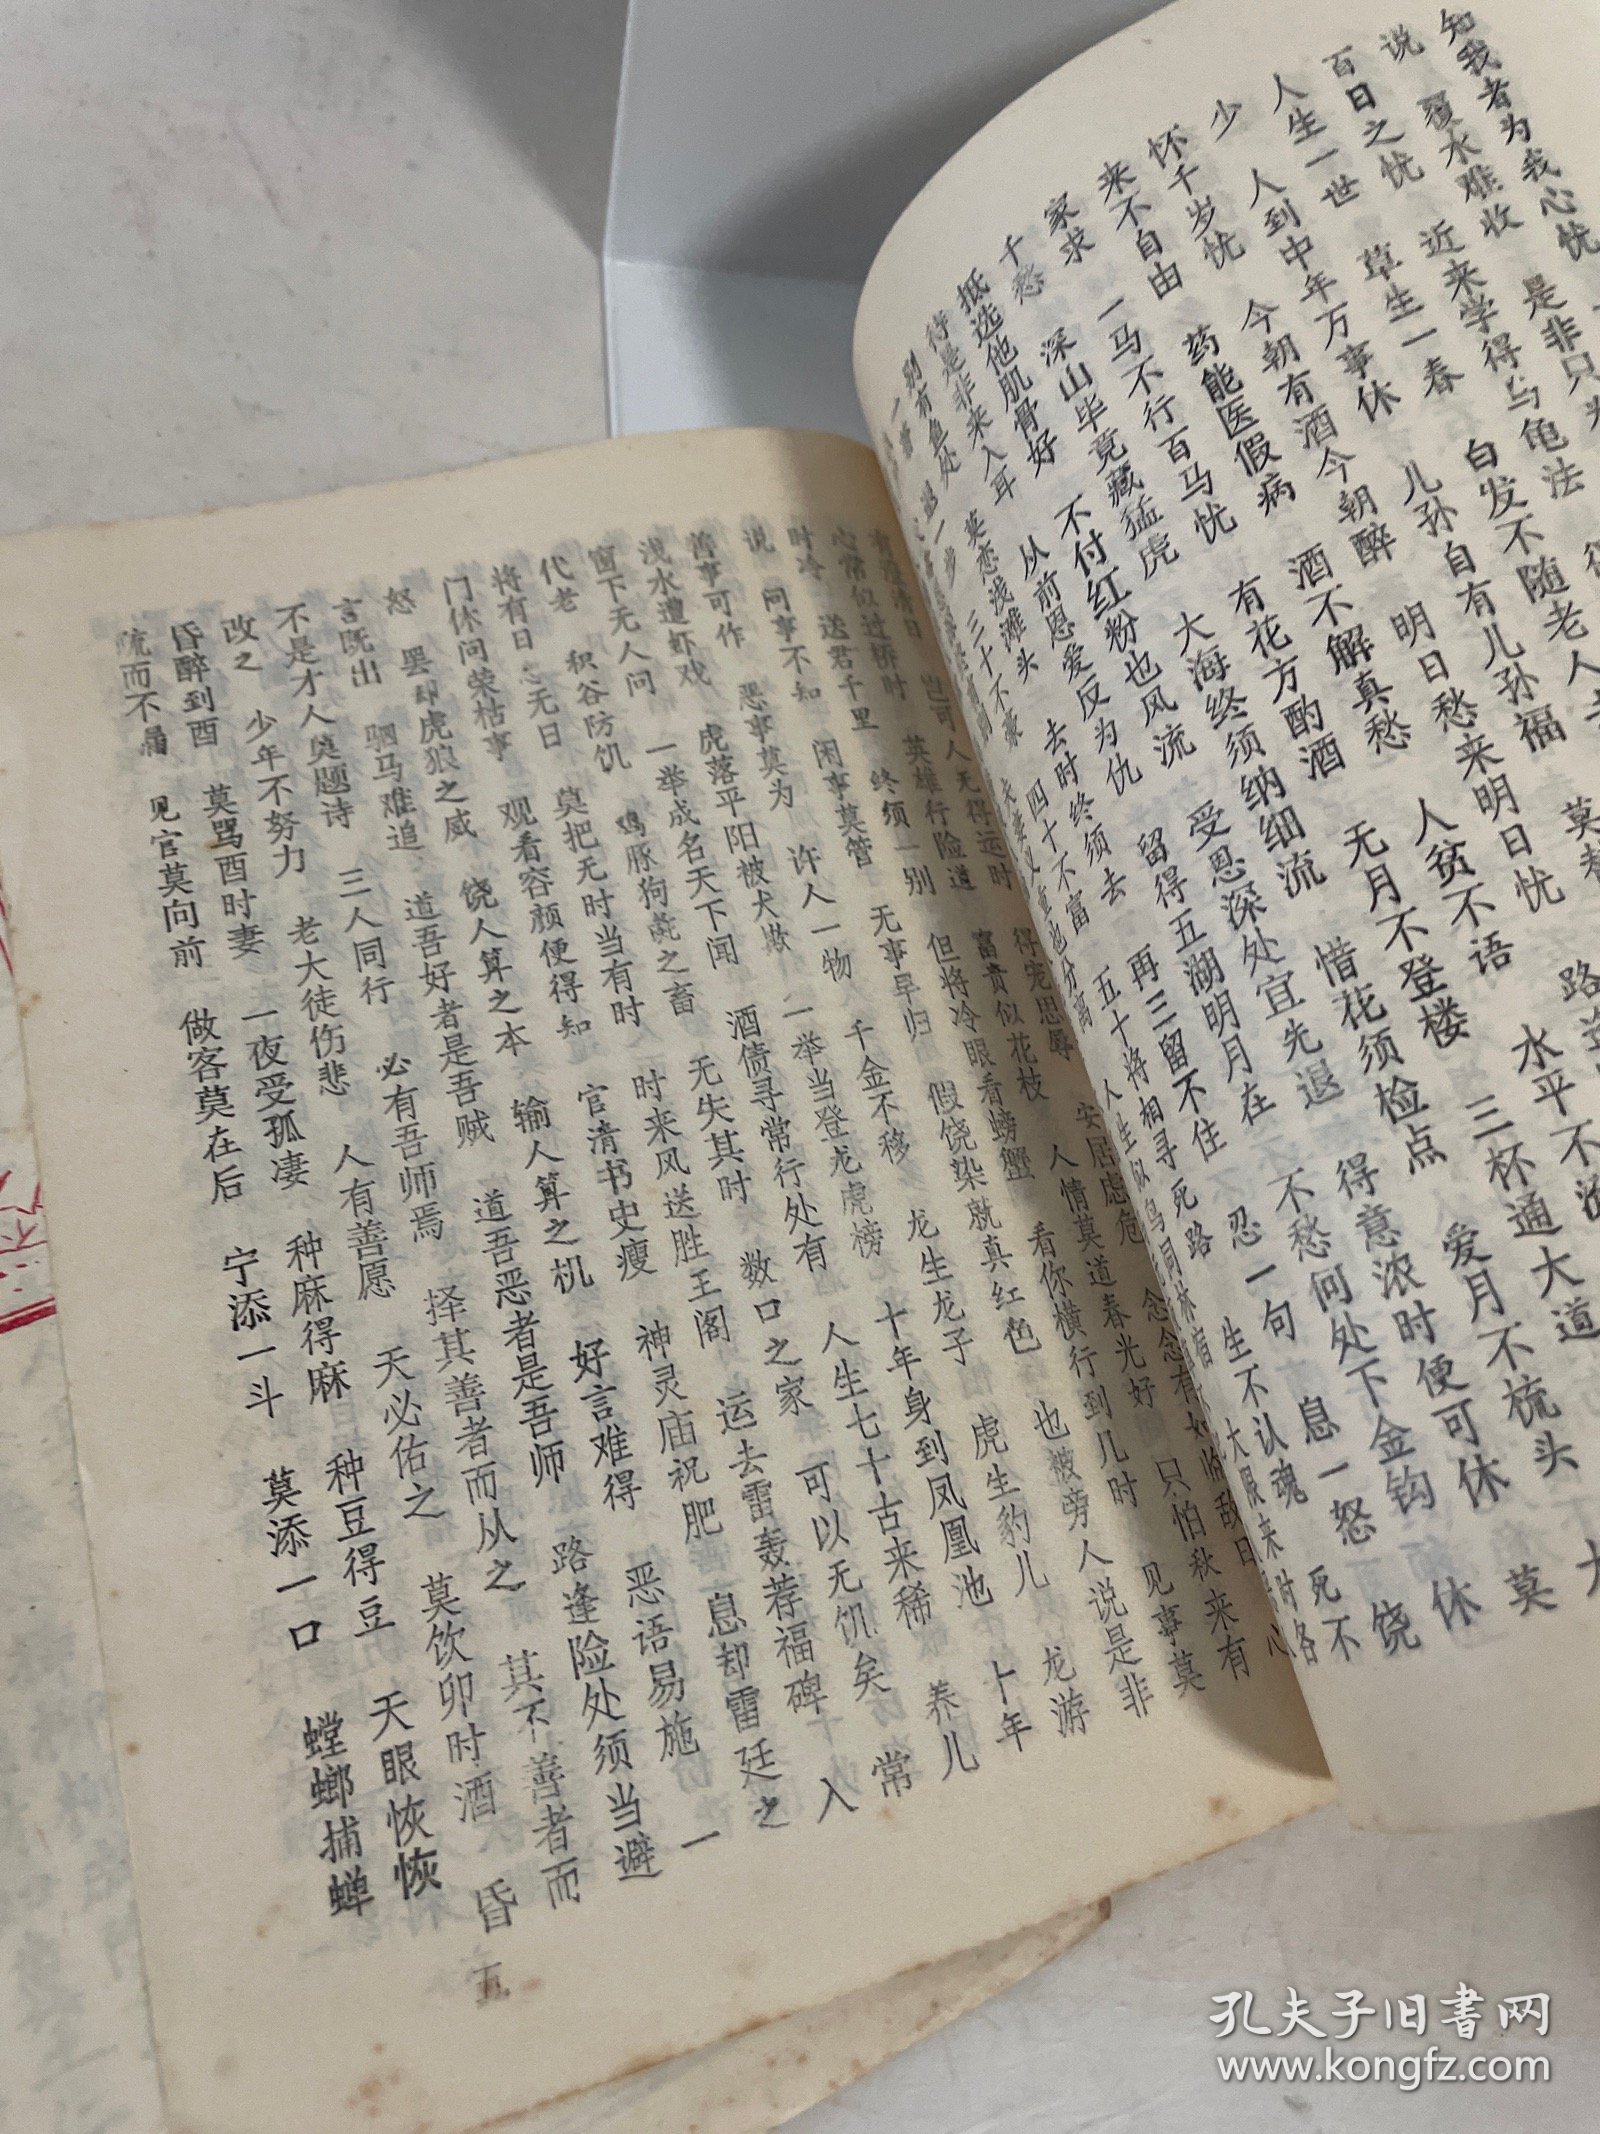 知我者为我心忧
说 覆水难收 是非只为
百日之忧 近来学得乌龟法
人生一世 草生一春 白发不随老人去
少 人到中年万事休 儿孙自有儿孙福 莫替
怀千岁忧 今朝有酒今朝醉 明日愁来明日忧 路逢
来不自由 药能医假病 酒不解真愁 人贫不语 水平不流
家求 一马不行百马忧 有花方酌酒 无月不登楼 三杯通大道
千愁 深山毕竟藏猛虎 大海终须纳细流 惜花须检点 爱月不梳头 大
抵选他肌骨好 不付红粉也风流 受恩深处宜先退 得意浓时便可休 莫
待是非来入耳 从前恩爱反为仇 留得五湖明月在 不愁何处下金钩 休
别有鱼处 莫恋浅滩头 去时终须去 再三留不住 忍一句 息一怒 饶
退一步 三十不豪 四十不富 五十将相寻死路 生不认魂 死不
夫妻义重也分离 人生似鸟同林宿 大限来时各
有澄清日 岂可人无得运时 得宠思辱 安居虑危 念念有如临敌日 心
心常似过桥时 英雄行险道 富贵似花枝 人情莫道春光好 只怕秋来有
时冷 送君千里 终须一别 但将冷眼看螃蟹 看你横行到几时 见事莫
说 问事不知 闲事莫管 无事早归 假饶染就真红色 也被旁人说是非
善事可作 恶事莫为 许人一物 千金不移 龙生龙子 虎生豹儿 龙游
浅水遭虾戏 虎落平阳被犬欺 一举当登龙虎榜 十年身到凤凰池 十年
窗下无人问 一举成名天下闻 酒债寻常行处有 人生七十古来稀 养儿
代老 积谷防饥 鸡豚狗彘之畜 无失其时 数口之家 可以无饥矣 常
将有日思无日 莫把无时当有时 时来风送胜王阁 运去雷轰荐福碑 入
门休问荣枯事 观看容颜便得知 官清书史瘦 神灵庙祝肥 息却雷廷之
怒 罢却虎狼之威 饶人算之本 输人算之机 好言难得 恶语易施 一
言既出 驷马难追 道吾好者是吾贼 道吾恶者是吾师 路逢险处须当避
不是才人莫题诗 三人同行 必有吾师焉 择其善者而从之 其不善者而
改之 少年不努力 老大徒伤悲 人有善愿 天必佑之 莫饮卯时酒 昏
昏醉到酉 莫骂酉时妻 一夜受孤凄 种麻得麻 种豆得豆 天眼恢恢
疏而不漏 见官莫向前 做客莫在后 宁添一斗 莫添一口 螳螂捕蝉
五
孔夫子旧书网
www.kongfz.com